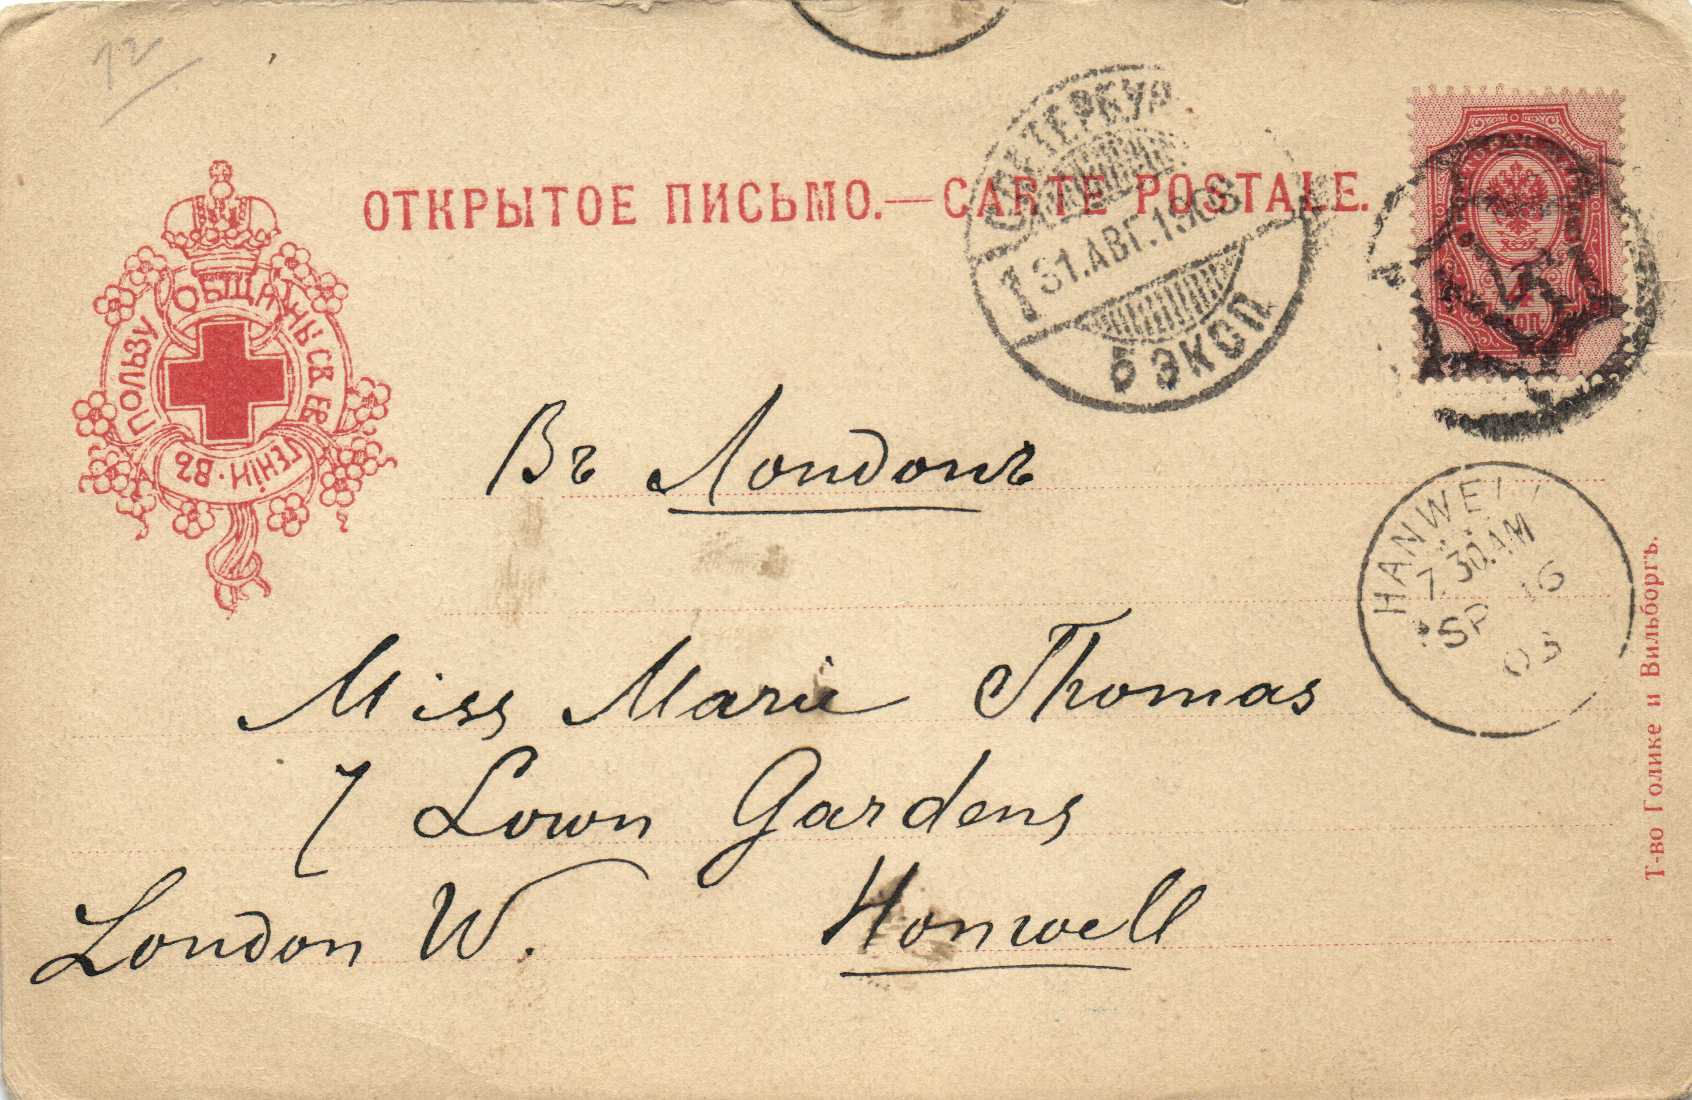 12
ОТКРЫТОЕ ПИСЬМО.—CARTE POSTALE.
ВЪ ПОЛЬЗУ ОБЩИНЫ СВ. ЕВГЕНІИ
31.АВГ.1903
5 ЭКСП
Въ Лондонъ
HANWELL
7.30.AM
SP 16
03
Miss Marie Thomas
7 Lown Gardens
London W. Honwell
Т-во Голике и Вильборгъ.